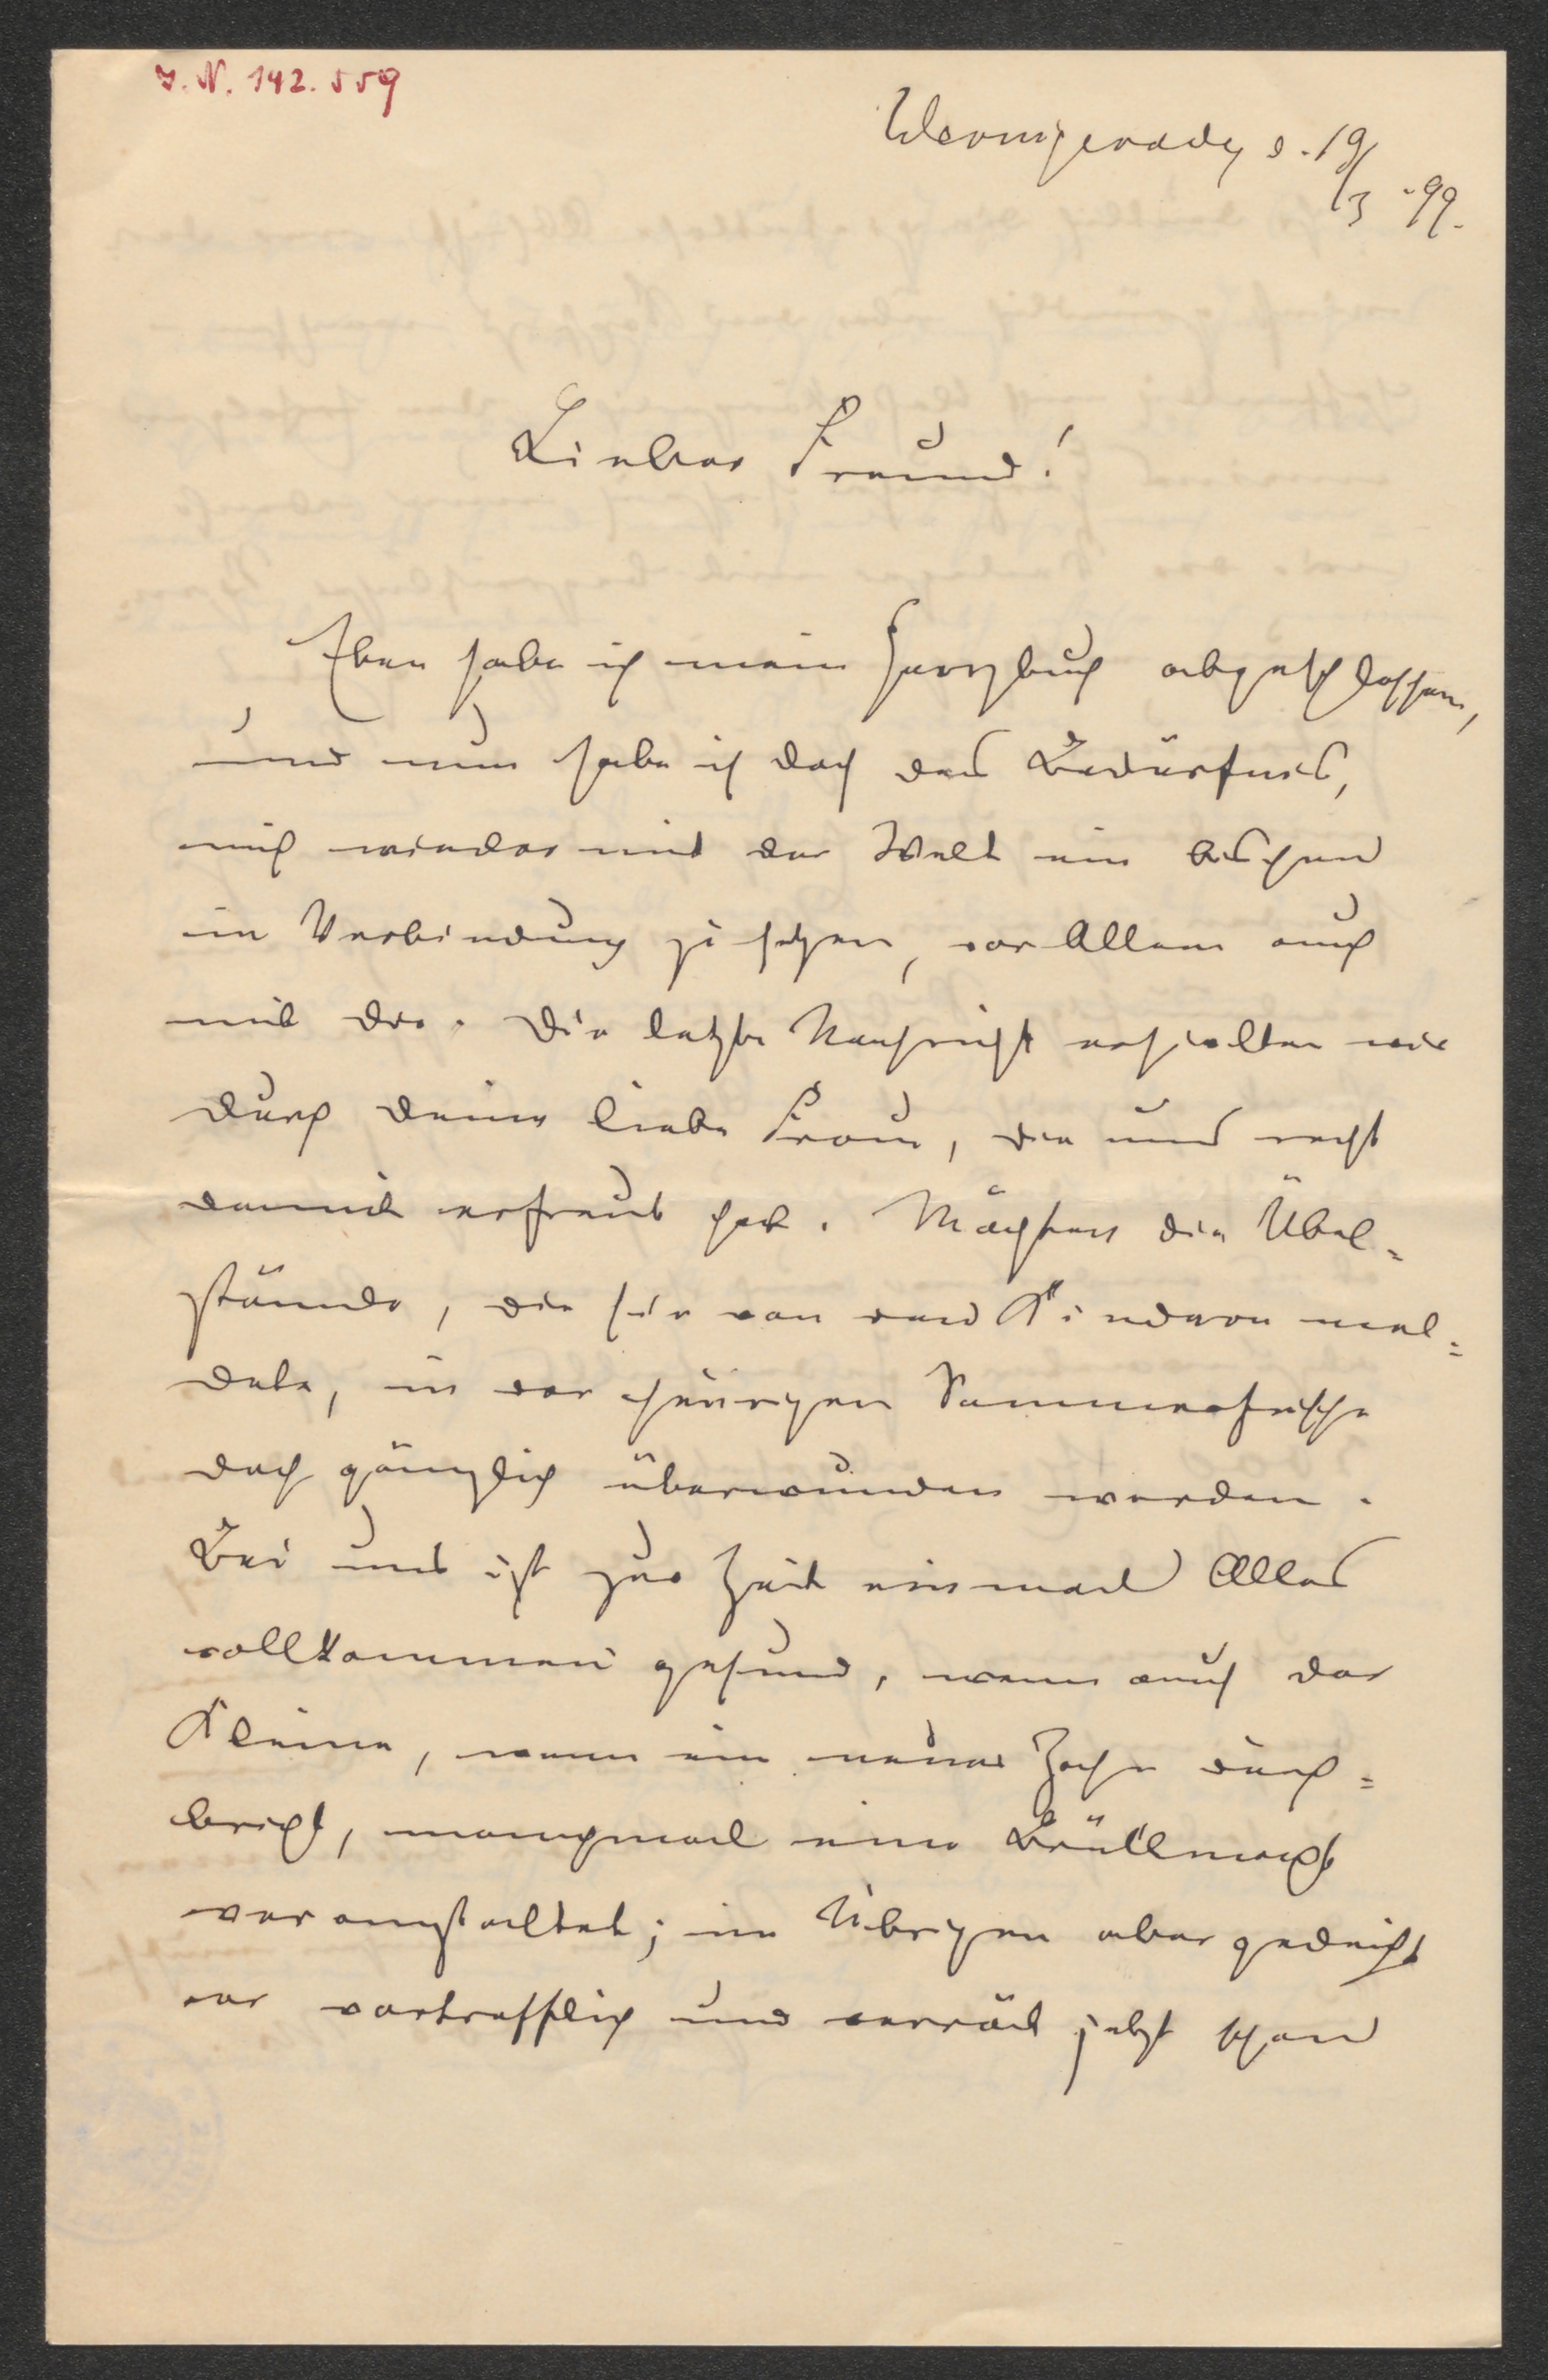 I. N. 142.559
Wernigerode, d. 19/3. 99.
Lieber Freund!
Eben habe ich mein Harzbuch abgeschlossen,
und nun habe ich doch das Bedürfnis,
mich wieder mit der Welt ein bischen
in Verbindung zu setzen, vor Allem auch
mit dir. Die letzte Nachricht erhielten wir
durch deine liebe Frau, die uns recht
damit erfreut hat. Möchten die Übel=
stände, die sie von den Kindern mel=
dete, in der heurigen Sommerfrische
doch gänzlich überwunden werden.
Bei uns ist zur Zeit einmal Alles
vollkommen gesund, wenn auch der
Kleine, wenn ein neuer Zahn durch=
bricht, manchmal eine Brüllnacht
veranstaltet; im Übrigen aber gedeiht
er vortrefflich und verrät jetzt schon